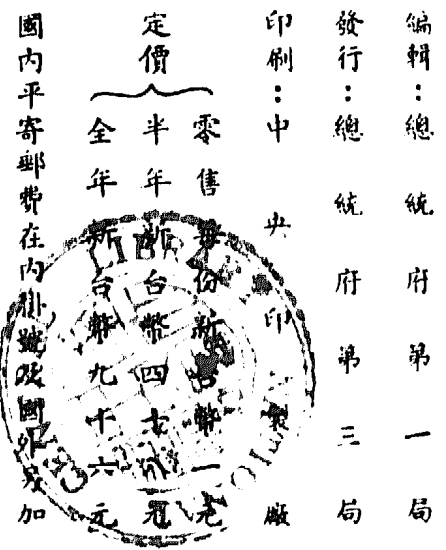 編輯：總統府第一局
發行：總統府第三局
印刷：中央印製廠
定價
零售每份新台幣一元
半年新台幣四十八元
全年新台幣九十六元
國內平寄郵費在內掛號及國外另加
LIBRARY